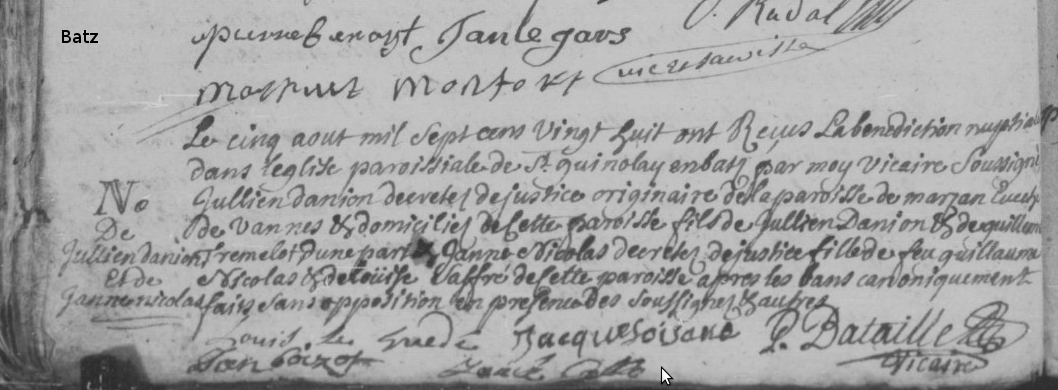 Batz
pierre benoist Jan le gars
J. Radal
mathurt monfort vic et sawille
Le cinq aout mil Sept cens vingt huit ont Reçus La benediction nuptiale
dans l'eglise paroissiale de St quinolay en batz par moy vicaire Soussigné
Jullien danion decretez de justice originaire de la paroisse de marzan Evesché
de Vannes & domiciliez de cette paroisse fils de Jullien Danion & de quillem
Tremelo d'une part & Janne Nicolas decretez de justice fille de feu guillaume
Nicolas & de Louise Laffré de cette paroisse apres les bans canoniquement
faits sans opposition en presence des soussignez & autres
No
De
Jullien danion
Et de
Janne nicolas
Louis le huede Jacques P. Bataille
Vicaire